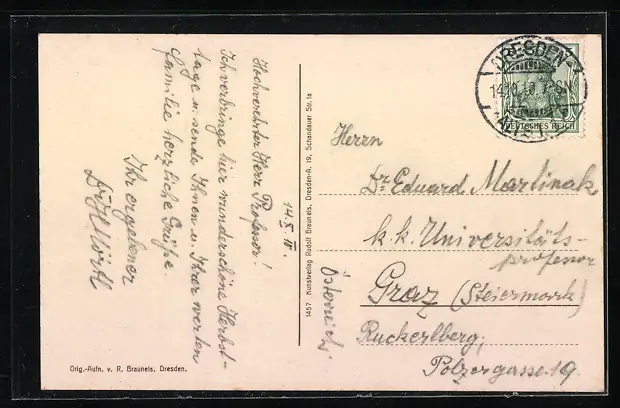 14. X. 10.
Hochverehrter Herr Professor!
Ich verbringe hier wunderschöne Herbst-
tage u. sende Ihnen u. Ihrer werten
Familie herzliche Grüße.
Ihr ergebener
Orig.-Aufn. v. R. Brauneis, Dresden.
1457 Kunstverlag Rudolf Brauneis, Dresden-A. 19, Schandauer Str. 1a
DRESDEN
14.10.10.
DEUTSCHES REICH
Herrn
Dr. Eduard Martinak
k. k. Universitäts-
professor
Graz (Steiermark)
Ruckerlberg,
Polzergasse 19.
Österreich